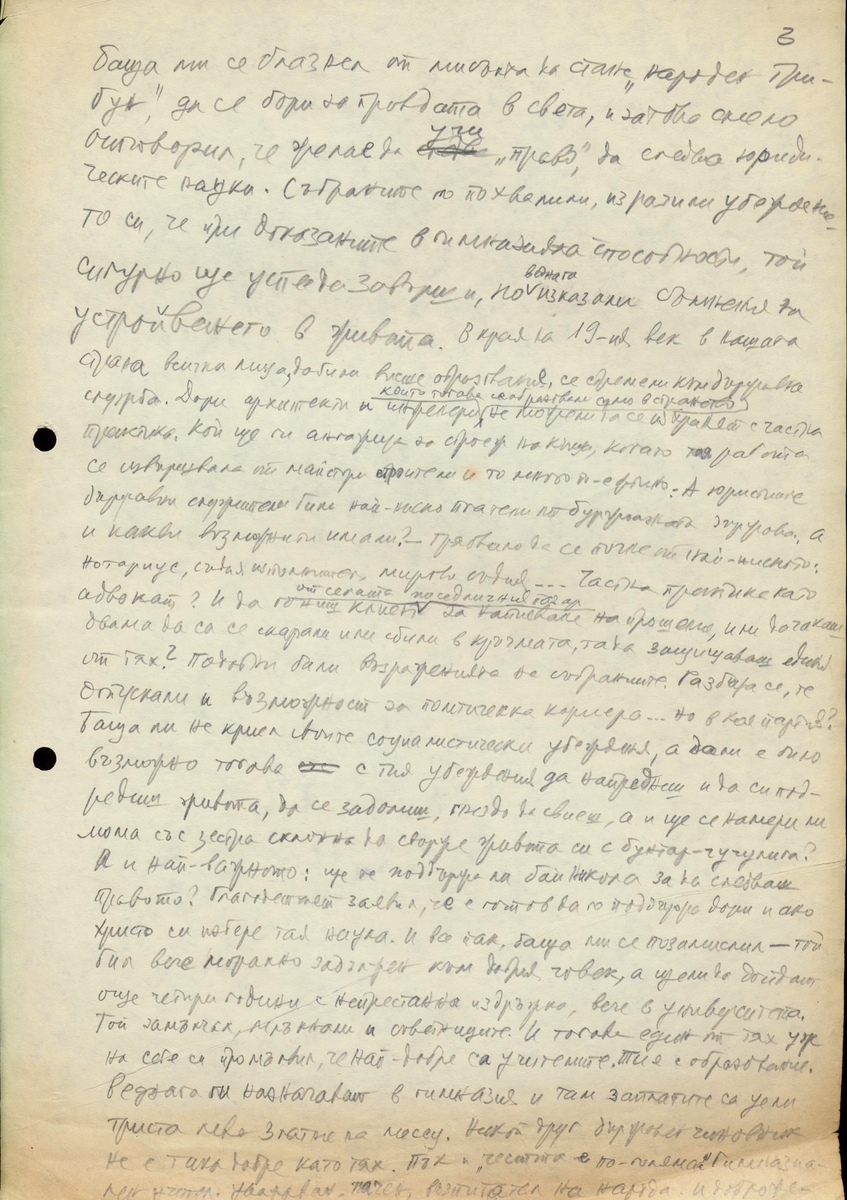 3
Баща ми се блазнел от мисълта да стане „народен три-
бун", да се бори за правдата в света, и затова смело
отговорил, че желае да учи „право", да следва юриди-
ческите науки. Събраните го похвалили, изразили убеждение-
то си, че при доказаните в гимназията способности, той
сигурно ще успее да завърши, но веднага изказали съмнения за
устройването в живота. В края на 19-ия век в нашата
страна всички лица, добили висше образование, се стремели към държавна
служба. Дори архитекти и инженери, които тогава се образовали само в странство, не можели да се издържат с частна
практика. Кой ще ги ангажира за строеж на къща, когато тая работа
се извършвала от майстори строители и то много по-ефтино. А юристите
държавни служители били най-ниско платени от буржоазната държава, а
и какви възможности имали? – Трябвало да се почне от най-ниското:
нотариус, съдия изпълнител, мирови съдия --- Частна практика като
адвокат? И да гониш клиент от селата на седмичния пазар за написване на прошение, или да чакаш
двама да са се скарали или сбили в кръчмата, та да защищаваш единия
от тях? Подобни били възраженията на събраните. Разбира се, те
допускали и възможност за политическа кариера... но в коя партия?
Баща ми не криел своите социалистически убеждения, а дали е било
възможно тогава с тия убеждения да напреднеш и да си под-
редиш живота, да се задомиш, гнездо да свиеш, а и ще се намери ли
мома със зестра склонна да свърже живота си с бунтар-чучулига?
А и най-важното: ще те поддържа ли бай Никола за да следваш
правото? Благодетелят заявил, че е готов да го поддържа дори и ако
Христо си избере тая наука. И все пак, баща ми се позамислил – той
бил вече морално задължен към добрия човек, а щели да дойдат
още четири години с непрестанна издръжка, вече в университета.
Той замълчал, млъкнали и съветниците. И тогава един от тях уж
на себе си промълвил, че най-добре са учителите. Тия с образование.
Веднага ги назначават в гимназия и там заплатите са цели
триста лева златни на месец. Никой друг държавен чиновник
не е тъй добре като тях. Пък и „честта е по-голяма" Гимназиа-
лен учител. възпитател на народа и